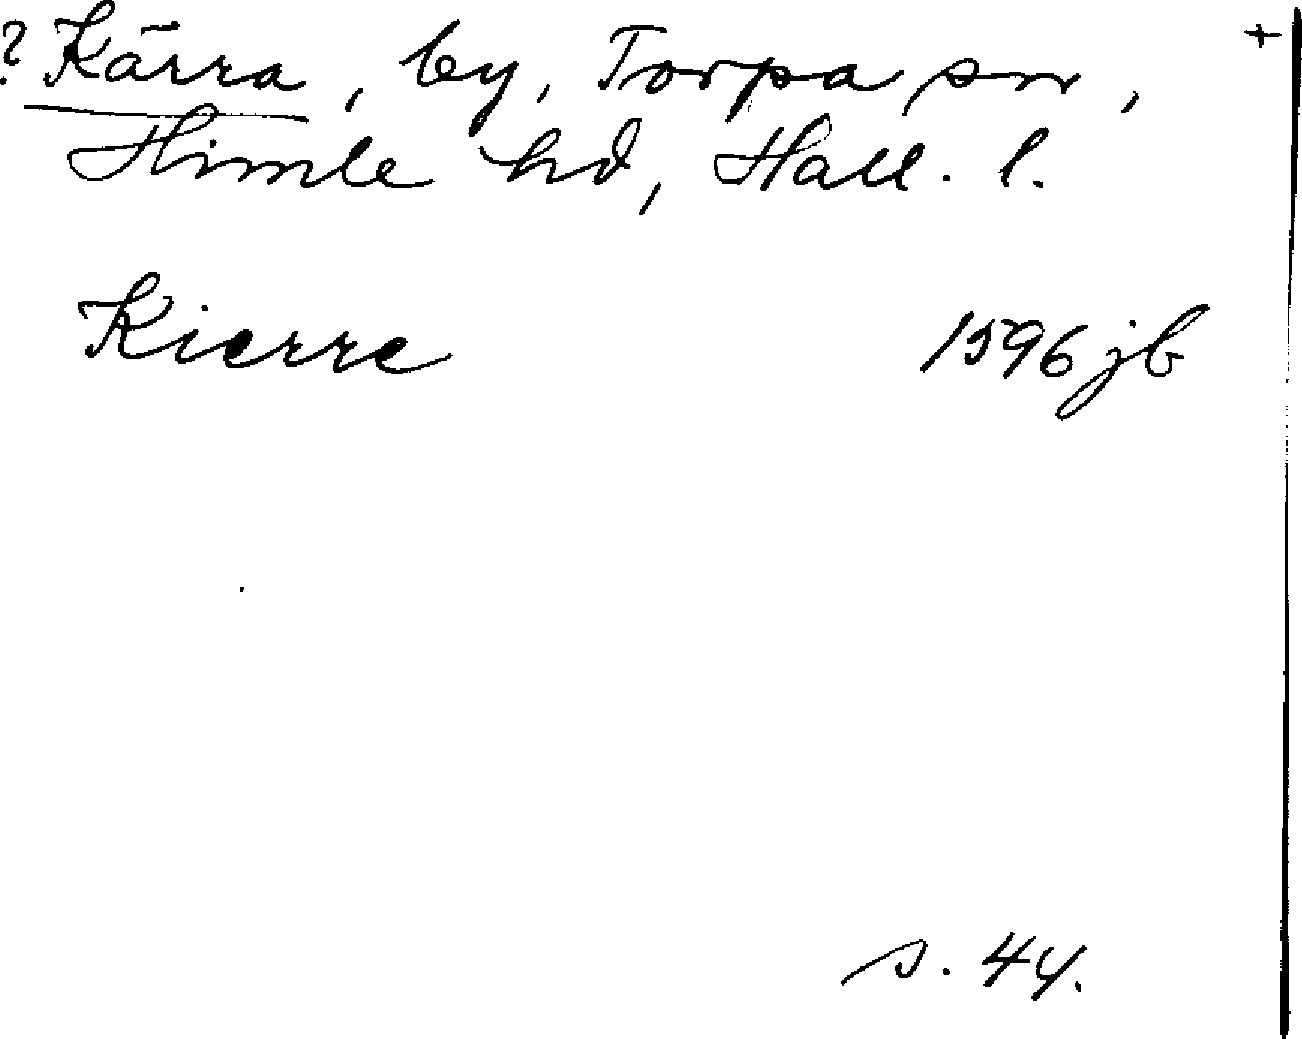 ? Kärra, by, Torpa sn, +
Himle hd, Hall. l.
Kierre 1596 jb
s. 44.